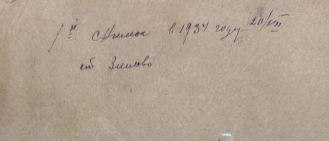 1й снимок в 1934 году 20/VII
ст. Зилово